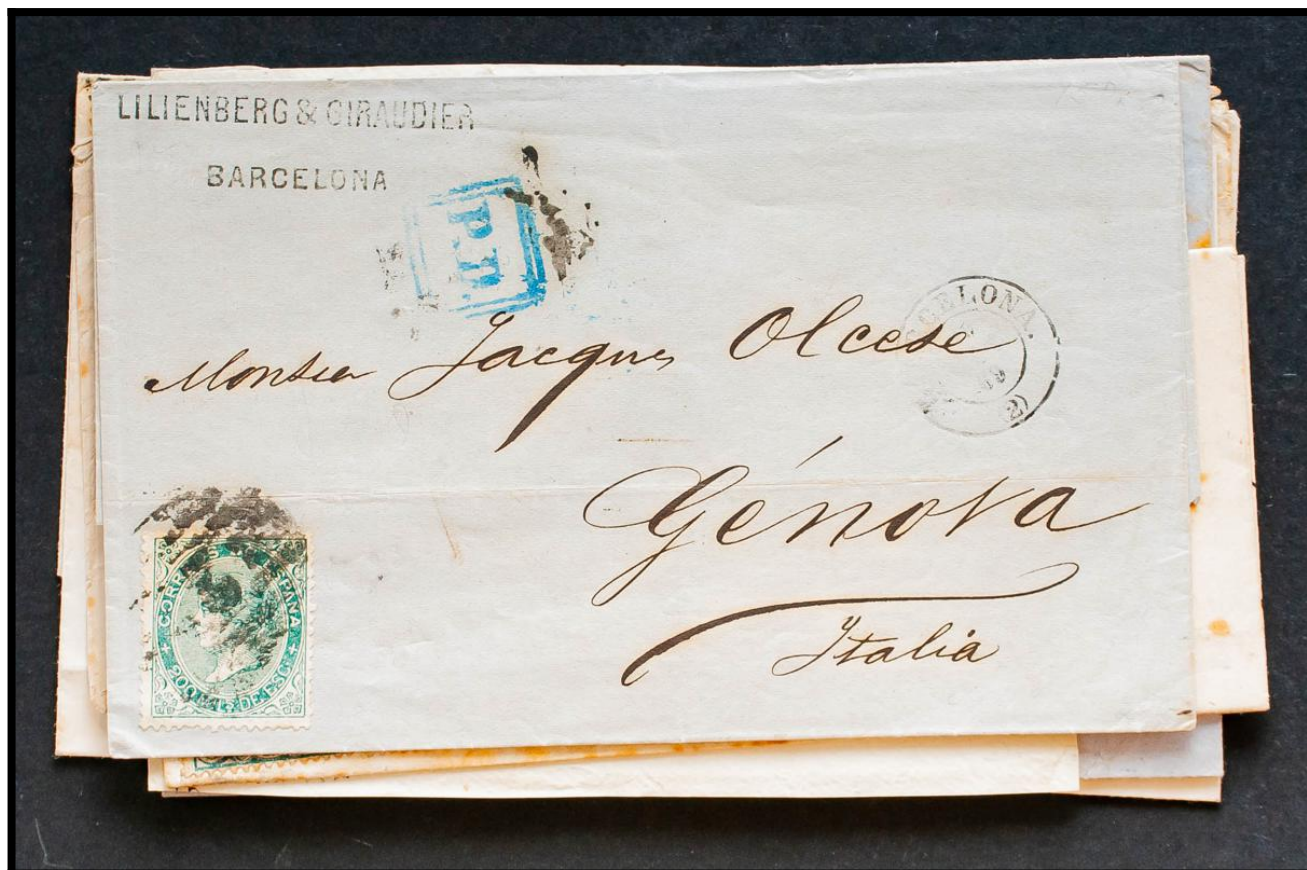 LILIENBERG & GIRAUDIER
BARCELONA
P.D.
CELONA.
69
(2)
Monsieur Jacques Olcese
Génova
Italia
CORREOS DE ESPAÑA
200 MILS DE ESCO